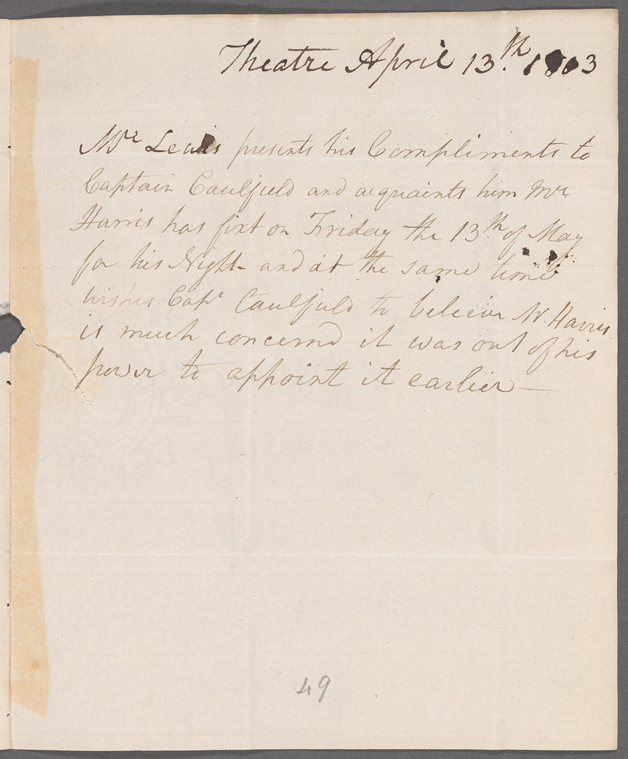 Theatre April 13.th 1803
Mr Lewis presents his Compliments to
Captain Caulfield and acquaints him Mr
Harris has fixt on Friday the 13th of May
for his Night - and at the same time
wishes Capt Caulfield to believe Mr Harris
is much concerned it was out of his
power to appoint it earlier —
49